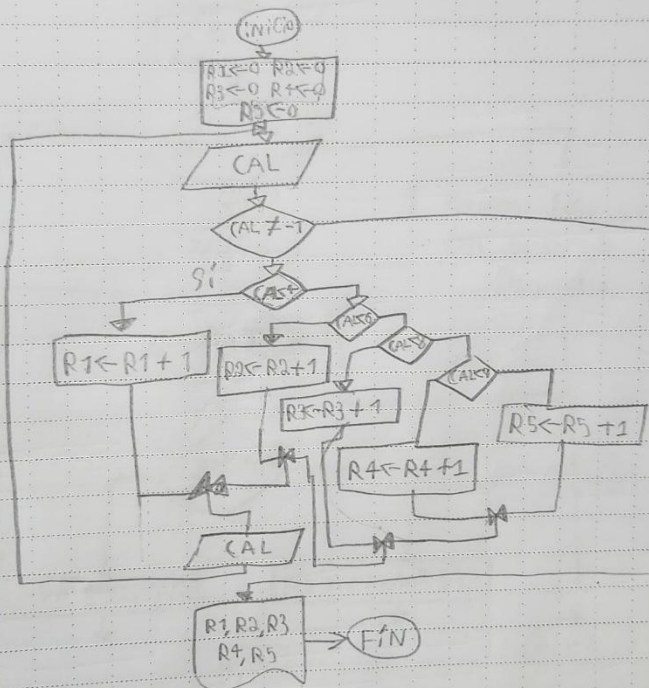 iNiCiO
R1←0 R2←0
R3←0 R4←0
R5←0
CAL
CAL ≠ -1
Si
CAL<4
CAL<6
CAL<8
CAL<9
R1←R1+1
R2←R2+1
R3←R3+1
R5←R5+1
R4←R4+1
CAL
R1, R2, R3
R4, R5
FiN